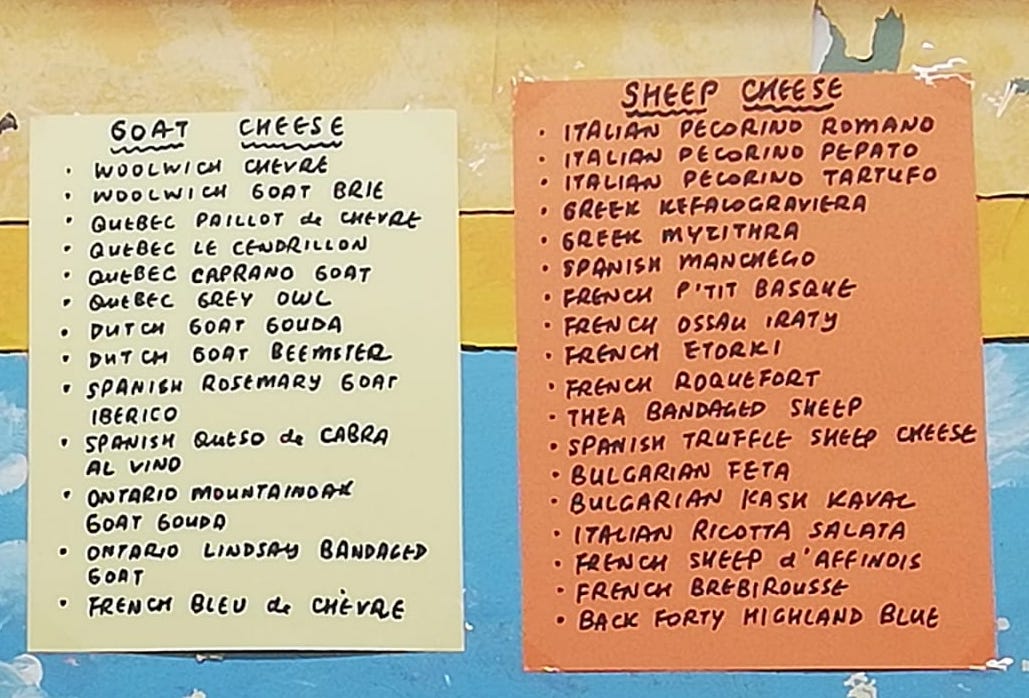 GOAT CHEESE
• WOOLWICH CHEVRE
• WOOLWICH GOAT BRIE
• QUEBEC PAILLOT de CHEVRE
• QUEBEC LE CENDRILLON
• QUEBEC CAPRANO GOAT
• QUEBEC GREY OWL
• DUTCH GOAT GOUDA
• DUTCH GOAT BEEMSTER
• SPANISH ROSEMARY GOAT
IBERICO
• SPANISH QUESO de CABRA
AL VINO
• ONTARIO MOUNTAINOAK
GOAT GOUDA
• ONTARIO LINDSAY BANDAGED
GOAT
• FRENCH BLEU de CHÈVRE
SHEEP CHEESE
• ITALIAN PECORINO ROMANO
• ITALIAN PECORINO PEPATO
• ITALIAN PECORINO TARTUFO
• GREEK KEFALOGRAVIERA
• GREEK MYZITHRA
• SPANISH MANCHEGO
• FRENCH P'TIT BASQUE
• FRENCH OSSAU IRATY
• FRENCH ETORKI
• FRENCH ROQUEFORT
• THEA BANDAGED SHEEP
• SPANISH TRUFFLE SHEEP CHEESE
• BULGARIAN FETA
• BULGARIAN KASH KAVAL
• ITALIAN RICOTTA SALATA
• FRENCH SHEEP d'AFFINOIS
• FRENCH BREBIROUSSE
• BACK FORTY HIGHLAND BLUE